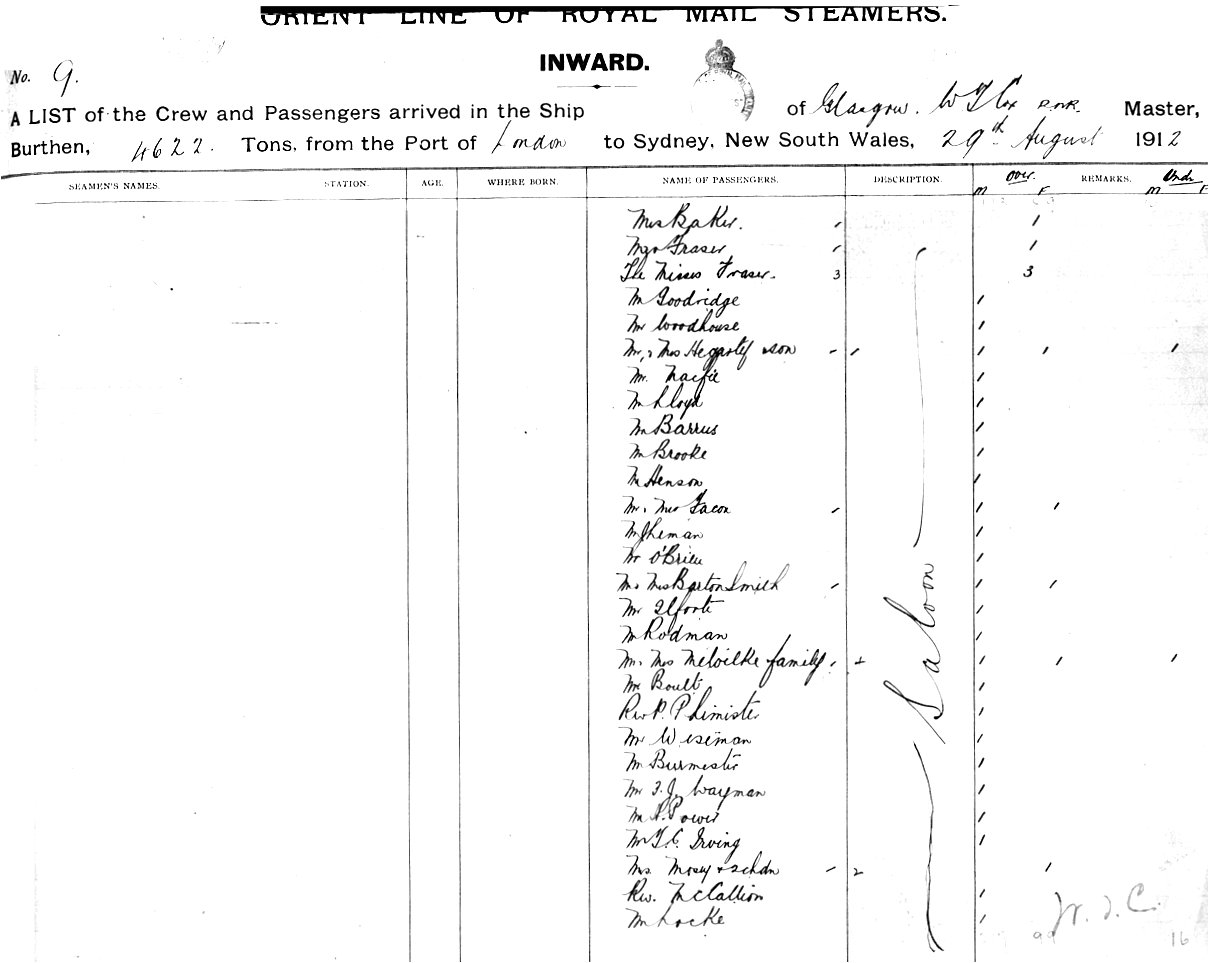 ORIENT LINE OF ROYAL MAIL STEAMERS.
INWARD.
No. 9.
A LIST of the Crew and Passengers arrived in the Ship of Glasgow. W J Cox R.N.R. Master,
Burthen, 4622. Tons, from the Port of London to Sydney, New South Wales, 29th August 1912
SEAMEN'S NAMES. STATION. AGE. WHERE BORN. NAME OF PASSENGERS. DESCRIPTION. Over REMARKS. Under
M F M F
Mrs Baker. 1 1
Mrs Fraser 1 1
The Misses Fraser. 3 3
Mr Goodridge 1
Mr Woodhouse 1
Mr, & Mrs Hegarty & son 1 1 1 1 1
Mr. Macfie 1
Mr Lloyd 1
Mr Barrus 1
Mr Brooke 1
Mr Henson 1
Mr. Mrs Facon 1 1 1
Mr Jheman 1
Mr O'Brien 1
Mr. Mrs Barton Smith 1 1 1
Mr 1
Mr Rodman 1
Mr. Mrs family 1 1 1
Mr Boult 1
Rev P. Phimister 1
Mr Wiseman 1
Mr Burmester 1
Mr F. J. Wayman 1
Mr P. Power 1
Mr T. C. Irving 1
Mrs. & 2 chdn 2 1
Rev. McCallion 1
Mr Locke 1
Saloon
W. J. C.
99 16